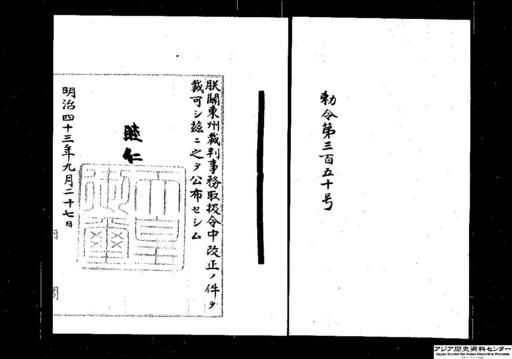 勅令第三百五十号
朕關東州裁判事務取扱令中改正ノ件ヲ
裁可シ玆ニ之ヲ公布セシム
睦仁
天皇
御璽
明治四十三年九月二十七日
アジア歴史資料センター
Japan Center for Asian Historical Records